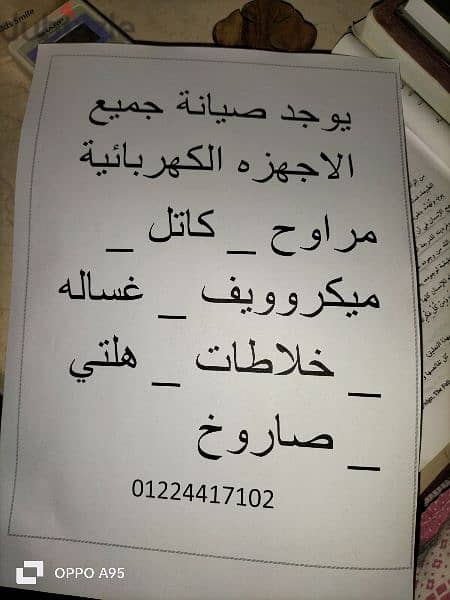 يوجد صيانة جميع
الاجهزه الكهربائية
مراوح _ كاتل _
ميكروويف _ غساله
_ خلاطات _ هلتي
_ صاروخ
01224417102
OPPO A95